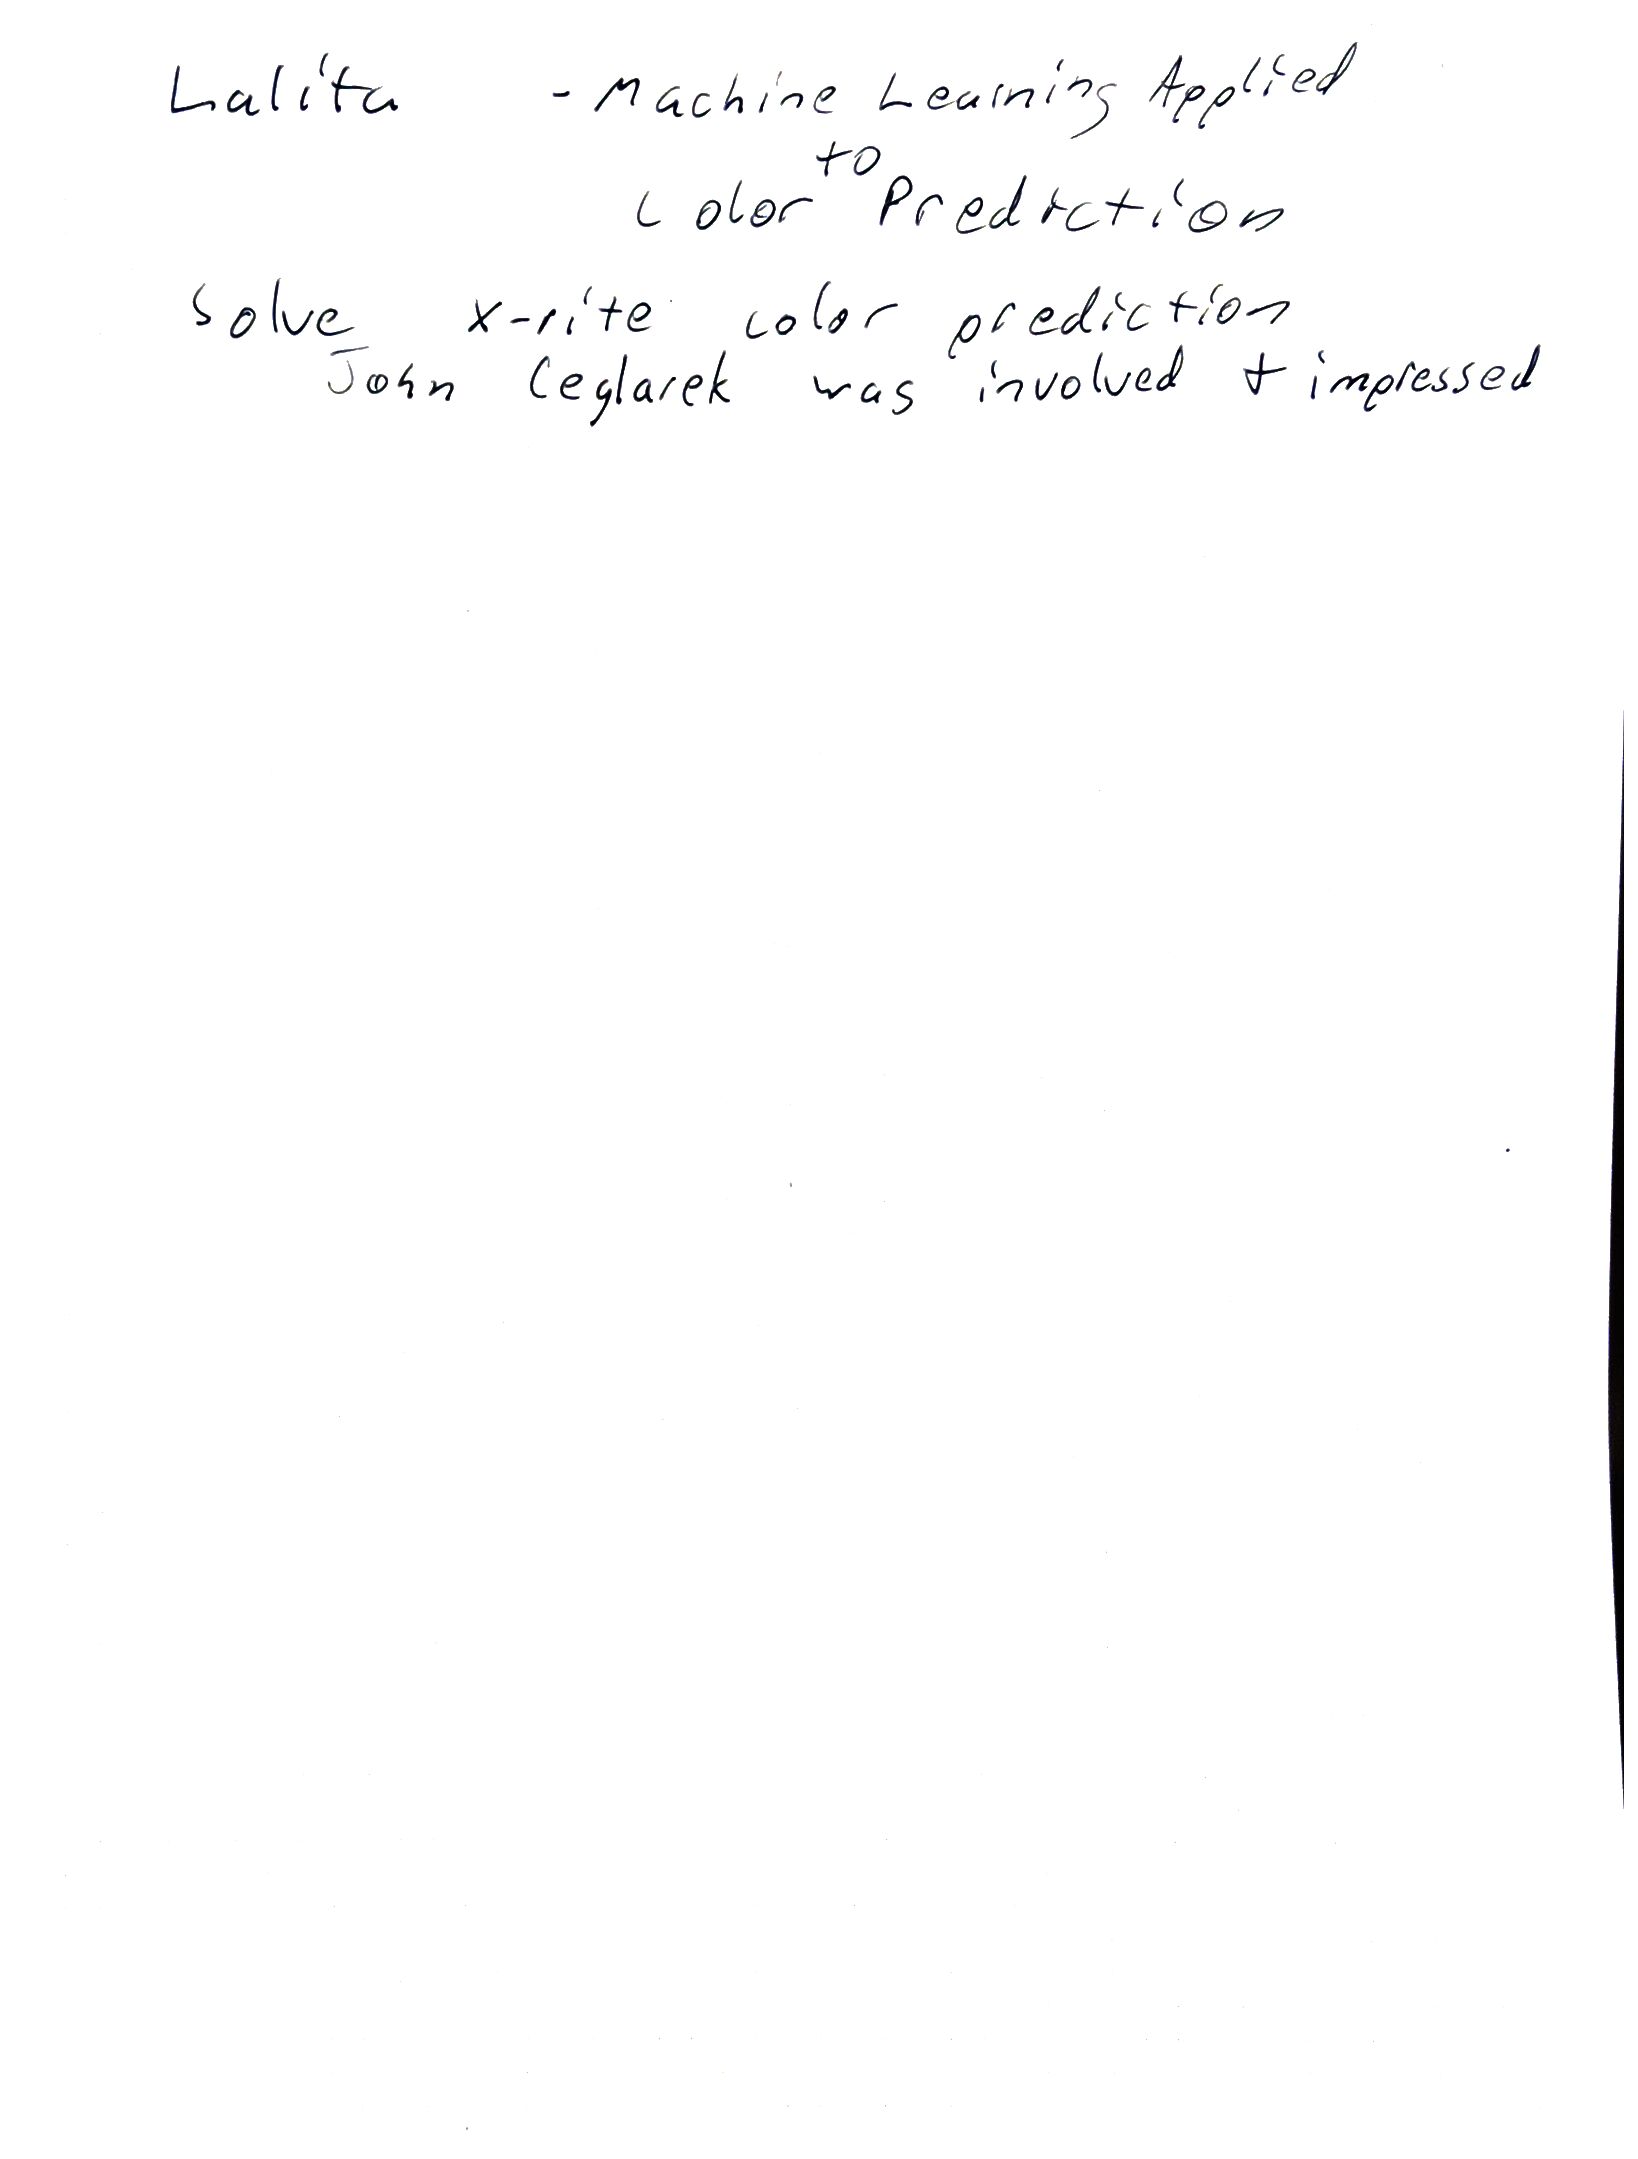 Lalita - Machine Learning Applied
to
Color Prediction
Solve x-rite color prediction
John Ceglarek was involved + impressed